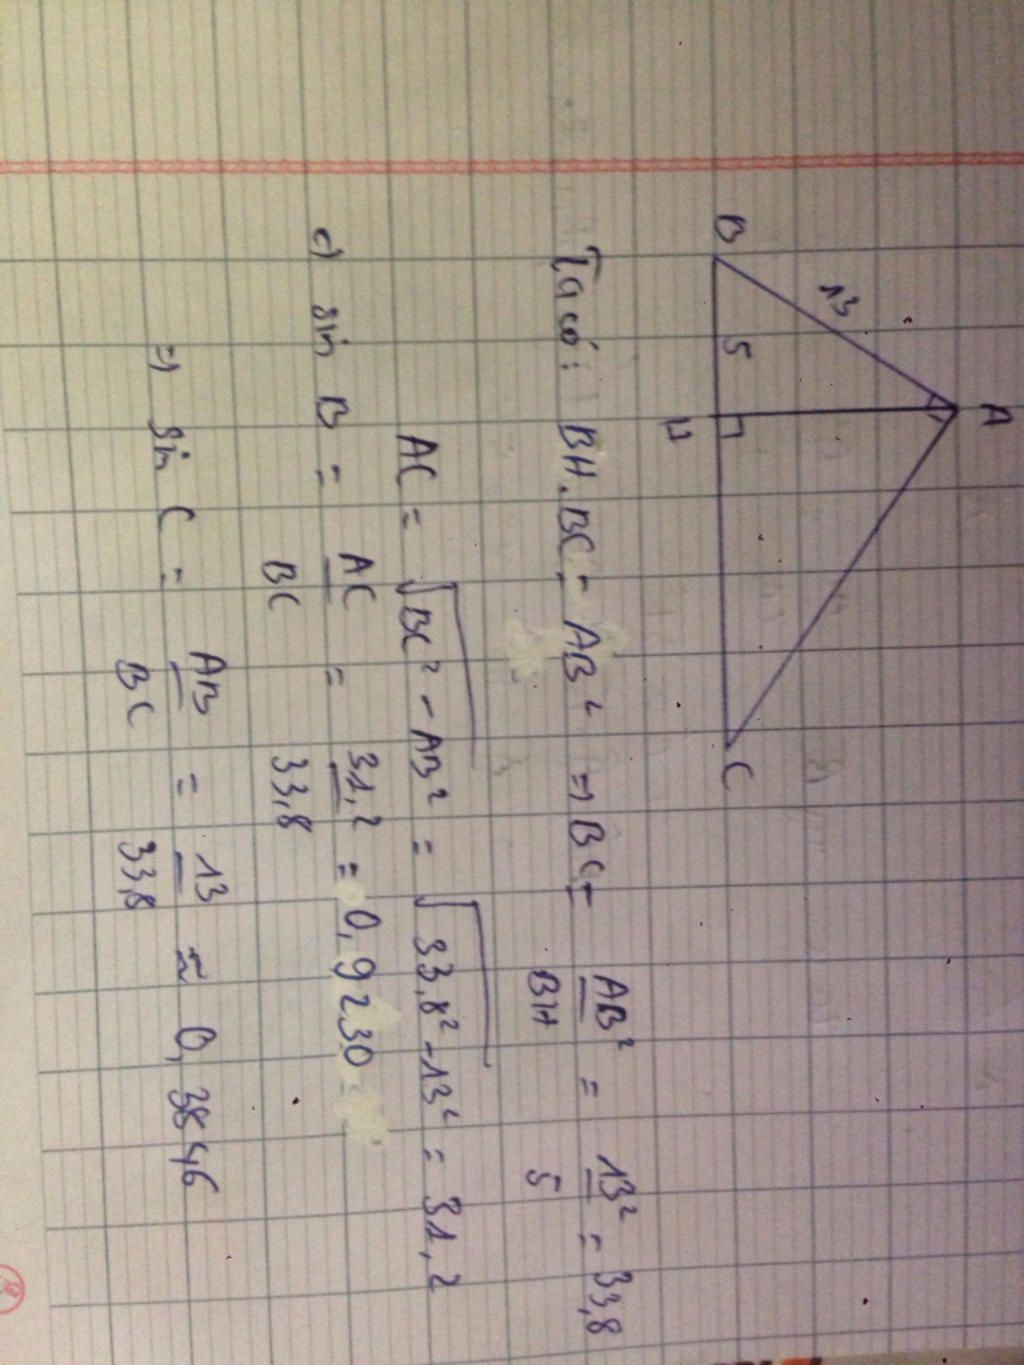 A
13
B 5 H C
Ta có: BH.BC = AB² => BC = AB²/BH = 13²/5 = 33,8
AC = √BC² - AB² = √33,8² - 13² = 31,2
c) sin B = AC/BC = 31,2/33,8 = 0,9230
=> sin C = AB/BC = 13/33,8 ≈ 0,3846